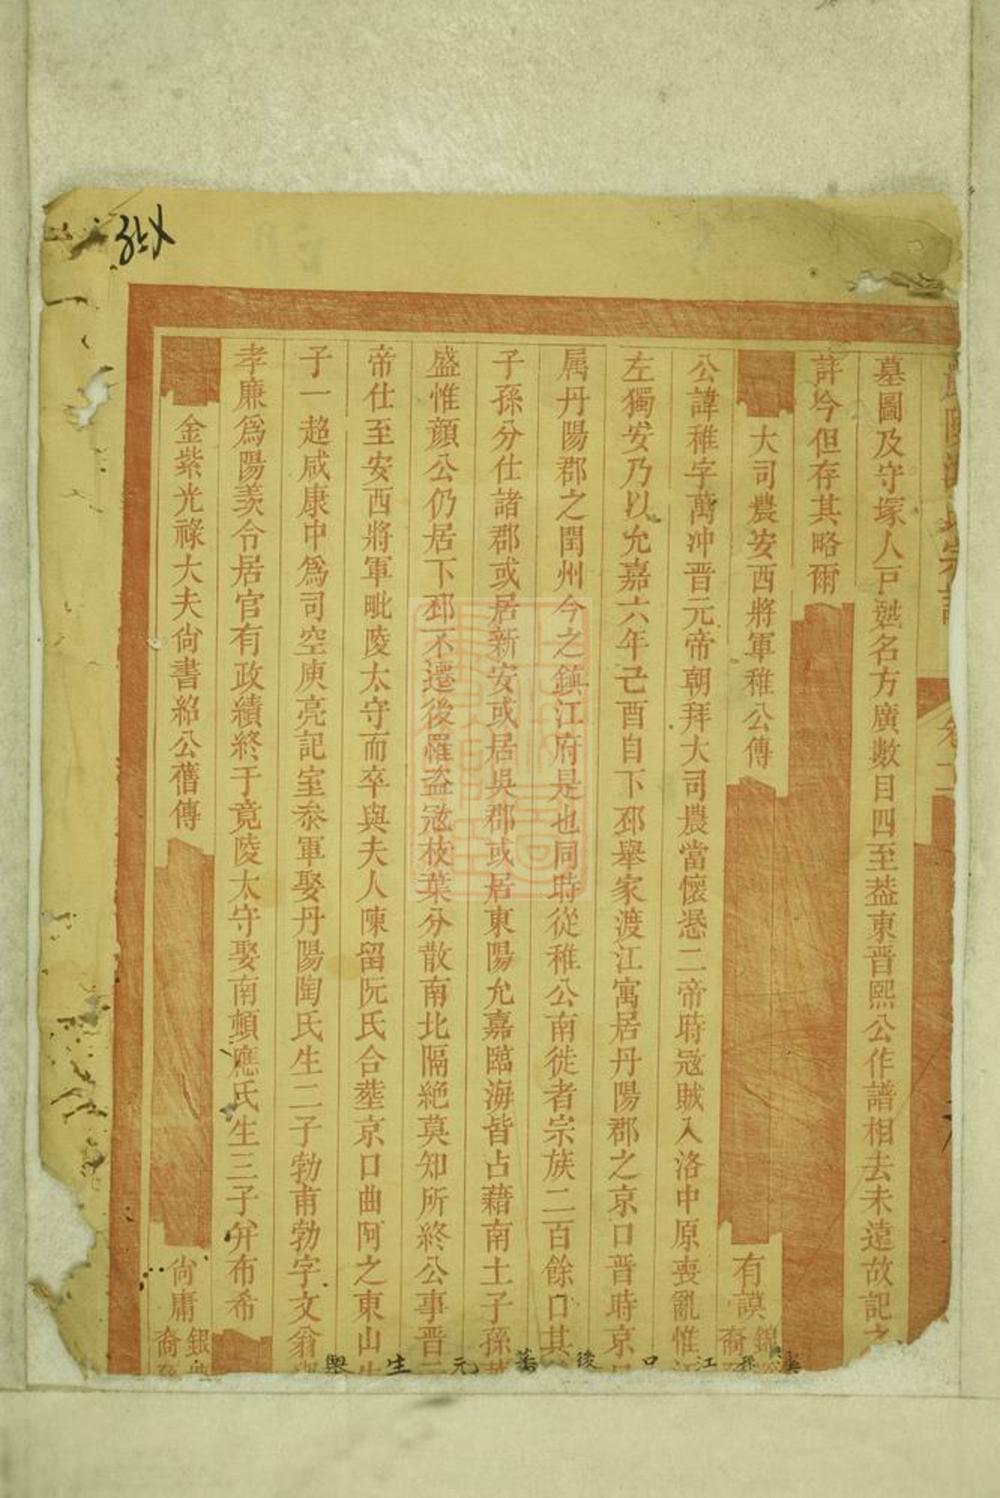 墓圖及守塚人戸甦名方廣數目四至葢東晋熙公作譜相去未遠故記之
詳今但存其略爾
大司農安西將軍稚公傳
有謨
公諱稚字萬冲晋元帝朝拜大司農當懷愍二帝時冦賊入洛中原喪亂惟
左獨安乃以允嘉六年己酉自下邳舉家渡江寓居丹陽郡之京口晋時京
属丹陽郡之閏州今之鎮江府是也同時從稚公南徙者宗族二百餘口其
子孫分仕諸郡或居新安或居吳郡或居東陽允嘉臨海皆占藉南土子孫
盛惟顔公仍居下邳不遷後罹盗冦枝葉分散南北隔絶莫知所終公事晋
帝仕至安西將軍毗陵太守而卒與夫人陳留阮氏合塟京口曲阿之東山
子一超咸康中爲司空庾亮記室叅軍娶丹陽陶氏生二子勃甫勃字文
孝廉爲陽羡令居官有政績終于竟陵太守娶南頓應氏生三子弁布希
金紫光祿大夫尙書紹公蕕傳
尙庸
江口後
元生舉